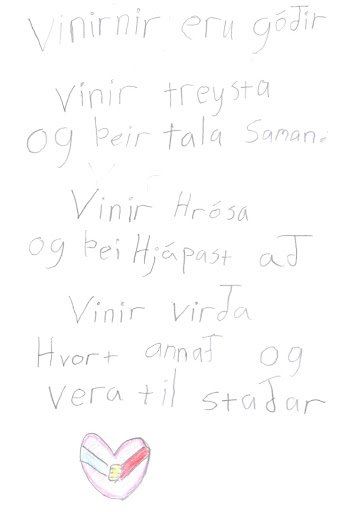 Vinirnir eru góðir
Vinir treysta
og þeir tala saman.
Vinir Hrósa
og þei Hjápast að
Vinir virða
Hvort annað og
vera til staðar